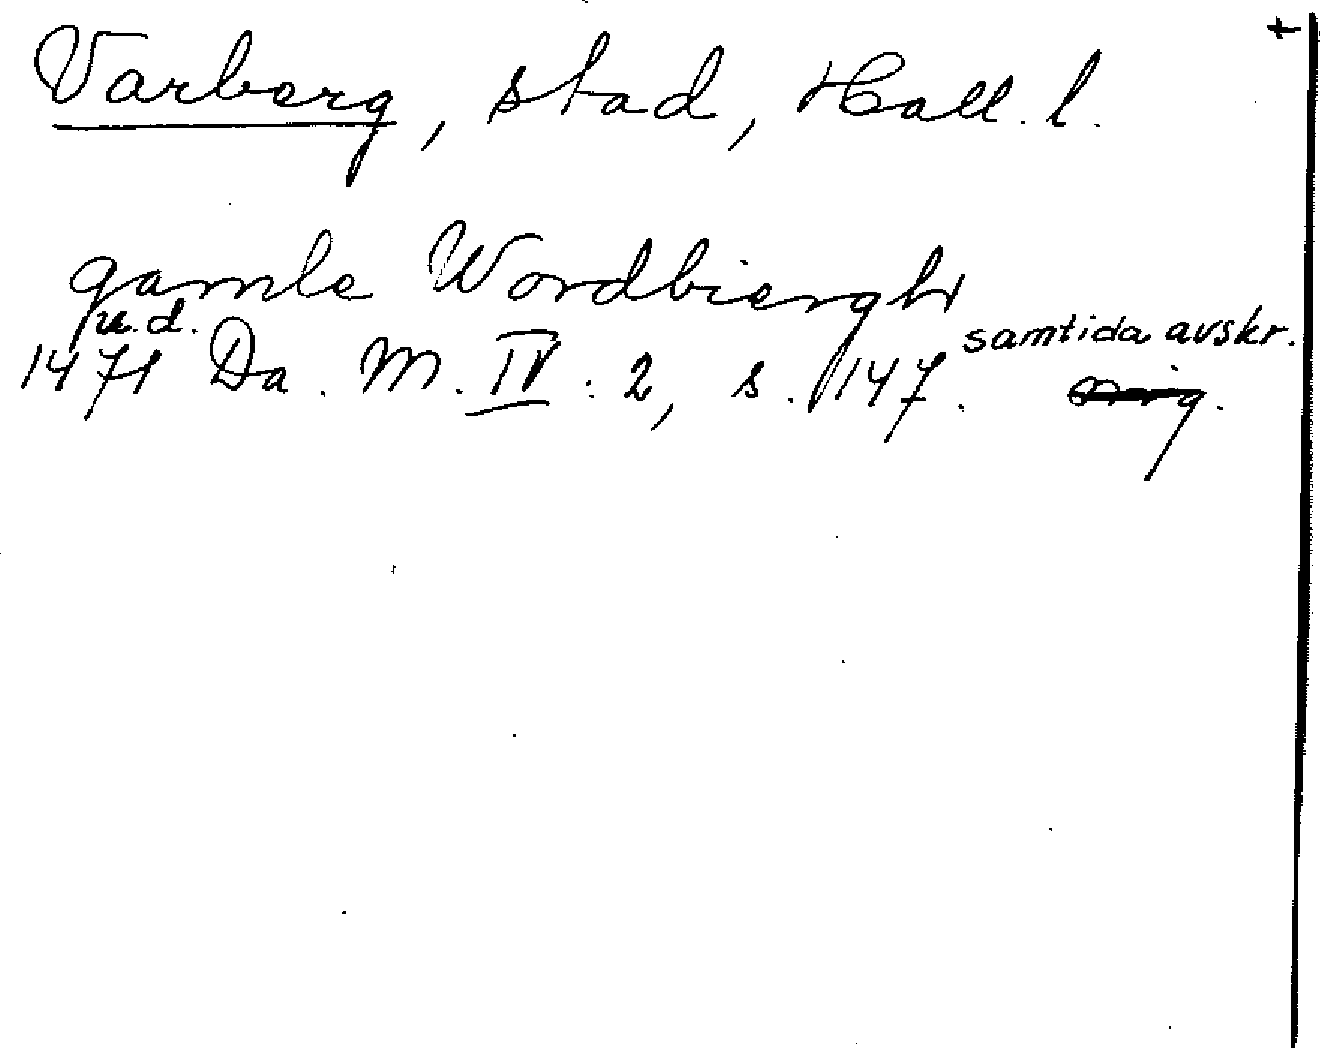 t
Varberg, stad, Hall. l.
gamle Wordbiergh
u.d.
1471 Da. M. IV: 2, s. 147. samtida avskr.